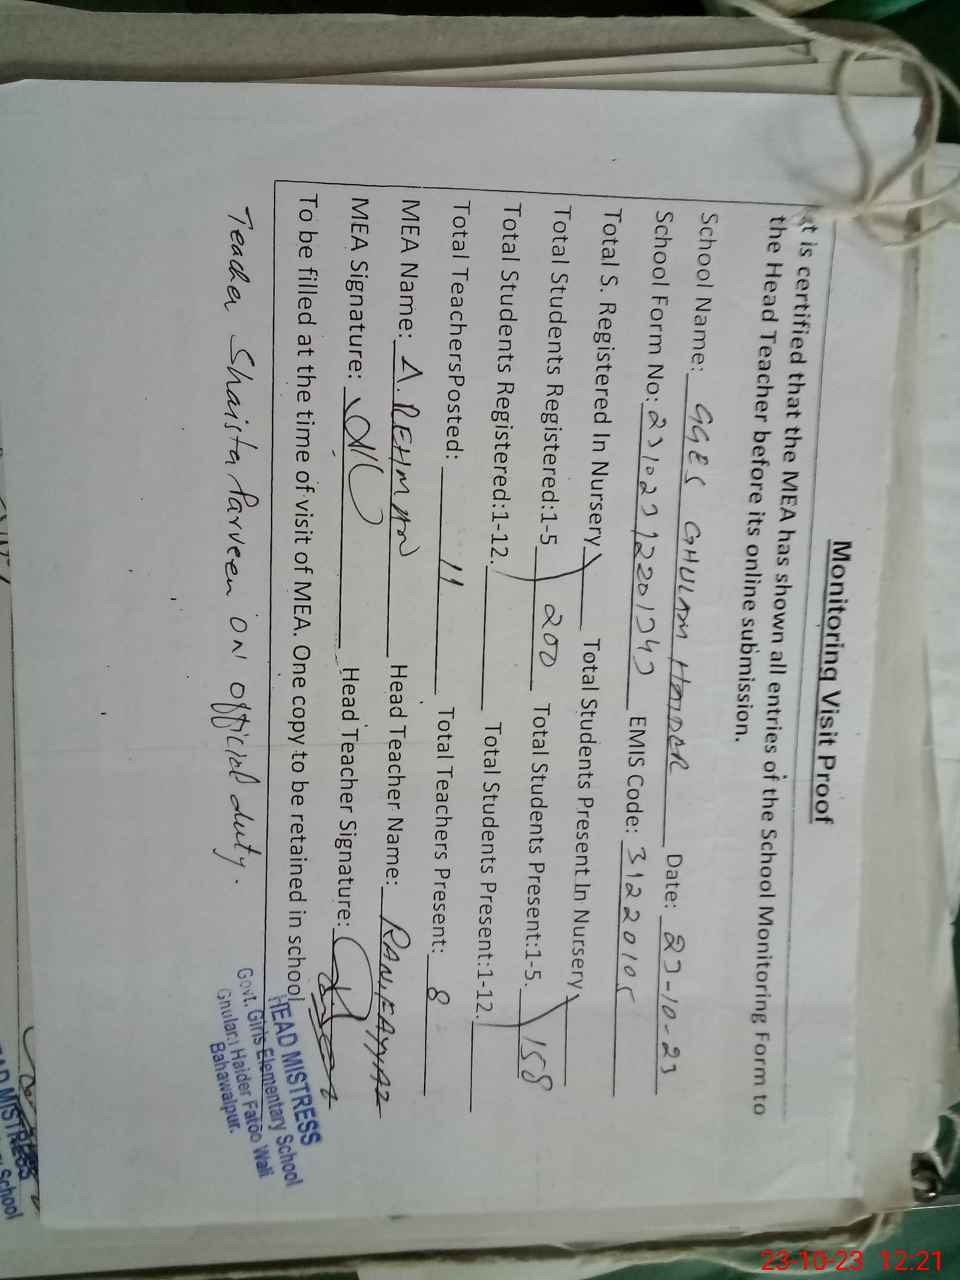 Monitoring Visit Proof
It is certified that the MEA has shown all entries of the School Monitoring Form to
the Head Teacher before its online submission.
School Name: GGES GHULAM HAIDER Date: 23-10-23
School Form No: 23102312201343 EMIS Code: 31220105
Total S. Registered In Nursery Total Students Present In Nursery
Total Students Registered:1-5 200 Total Students Present:1-5. 158
Total Students Registered:1-12. Total Students Present:1-12.
Total TeachersPosted: 11 Total Teachers Present: 8
MEA Name: A. REHMAN Head Teacher Name:
MEA Signature: Head Teacher Signature:
To be filled at the time of visit of MEA. One copy to be retained in school
HEAD MISTRESS
Govt. Girls Elementary School
Haider Wali
Bahawalpur.
Teacher Shaista Parveen ON official duty.
School
23-10-23 12:21